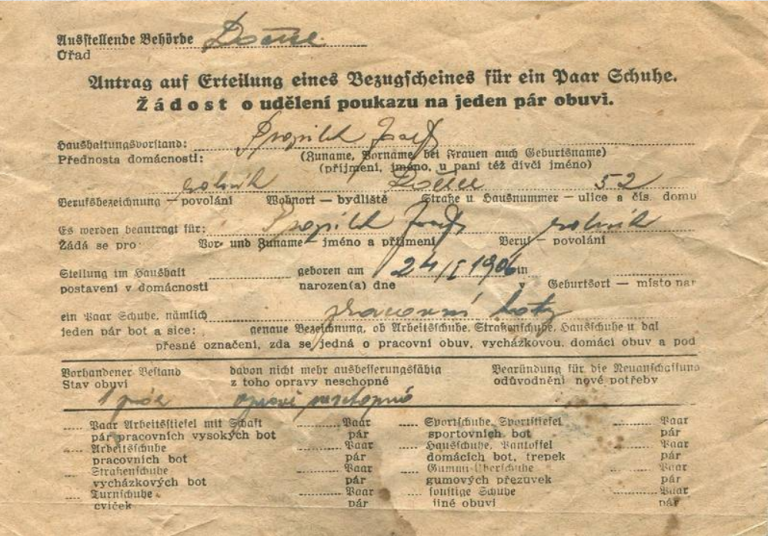 Ausstellende Behörde
Úřad
Antrag auf Erteilung eines Bezugscheines für ein Paar Schuhe.
Žádost o udělení poukazu na jeden pár obuvi.
Haushaltungsvorstand: Josef
Přednosta domácnosti: (Zuname, Vorname, bei Frauen auch Geburtsname)
(příjmení, jméno, u paní též dívčí jméno)
rolník 52
Berufsbezeichnung – povolání Wohnort – bydliště Straße u. Hausnummer – ulice a čís. domu
Es werden beantragt für: Josef rolník
Žádá se pro Vor- und Zuname – jméno a příjmení Beruf – povolání
Stellung im Haushalt geboren am 24/I 1906 in
postavení v domácnosti narozen(a) dne Geburtsort – místo nar
ein Paar Schuhe, nämlich pracovní boty
jeden pár bot a sice: genaue Bezeichnung, ob Arbeitsschuhe, Straßenschuhe, Hausschuhe u dal
přesné označení, zda se jedná o pracovní obuv, vycházkovou, domácí obuv a pod
Vorhandener Bestand davon nicht mehr ausbesserungsfähig Begründung für die Neuanschaffung
Stav obuvi z toho opravy neschopné odůvodnění nové potřeby
1 pár opravě neschopné
Paar Arbeitsstiefel mit Schaft Paar Sportschuhe, Sportstiefel Paar
pár pracovních vysokých bot pár sportovních bot pár
Arbeitsschuhe Paar Hausschuhe, Pantoffel Paar
pracovních bot pár domácích bot, trepek pár
Straßenschuhe Paar Gummi-Überschuhe Paar
vycházkových bot pár gumových přezuvek pár
Turnschuhe Paar sonstige Schuhe Paar
cviček pár jiné obuvi pár